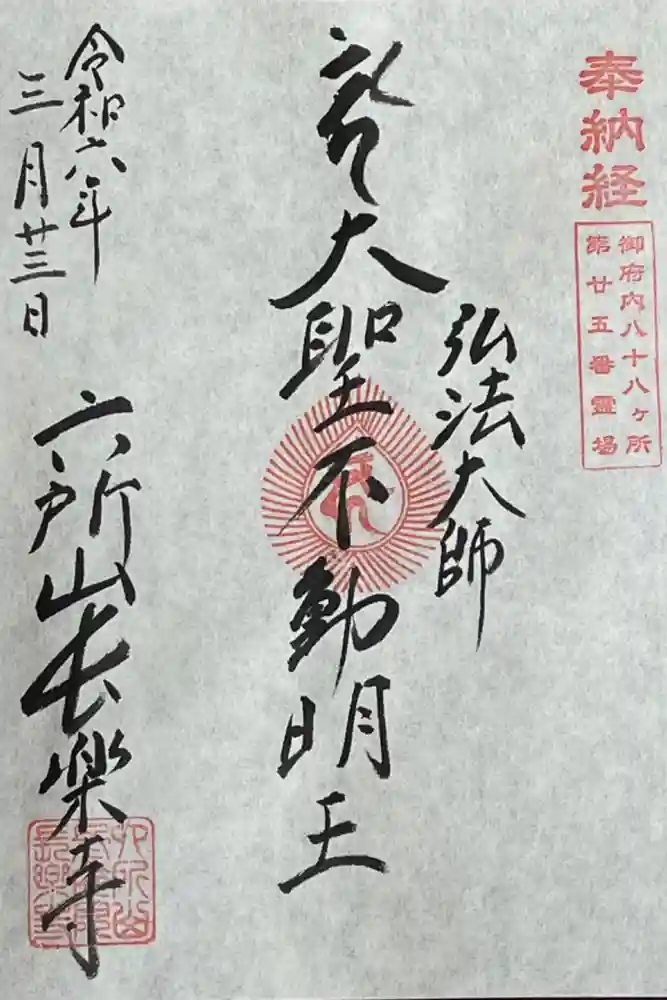 奉納経
御府内八十八ヶ所
第廿五番霊場
弘法大師
大聖不動明王
令和六年
三月廿三日
六所山長楽寺